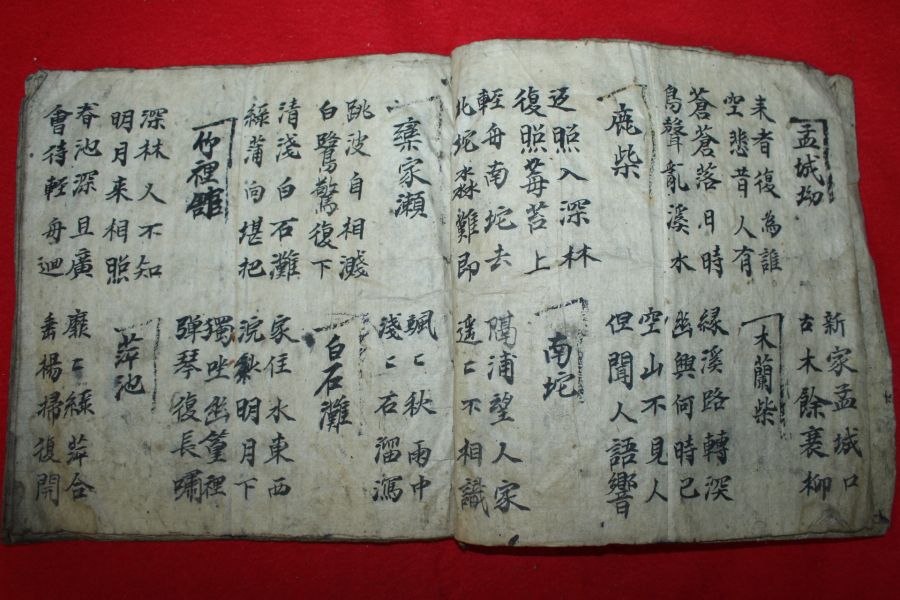 孟城坳
新家孟城口
古木餘衰柳
来者復為誰
空悲昔人有
木蘭柴
蒼蒼落月時
鳥聲亂溪水
緣溪路轉深
幽興何時已
鹿柴
空山不見人
但聞人語響
返照入深林
復照莓苔上
南坨
輕舟南坨去
北坨淼難即
隔浦望人家
遥〻不相識
欒家瀬
颯〻秋雨中
淺〻石溜瀉
跳波自相濺
白鷺驚復下
白石灘
清淺白石灘
綠蒲向堪把
家住水東西
浣紗明月下
竹裡館
獨坐幽篁裡
弹琴復長嘯
深林人不知
明月来相照
萍池
春池深且廣
會待輕舟迴
靡〻綠萍合
垂楊掃復開